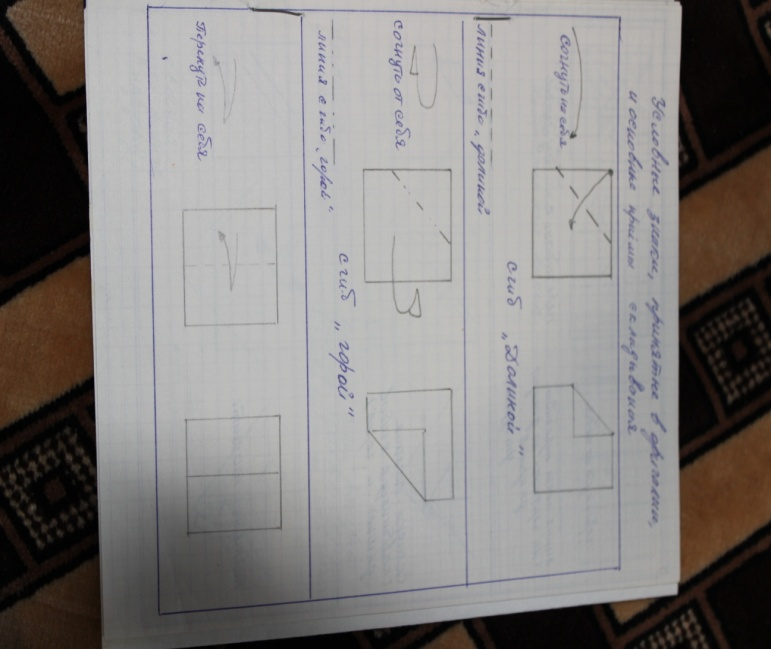 Условные знаки, принятые в оригами,
и основные приёмы складывания
согнуть на себя
линия сгиба „долиной
сгиб „Долиной"
согнуть от себя
линия сгиба „горой"
сгиб „горой"
Перегнуть на себя